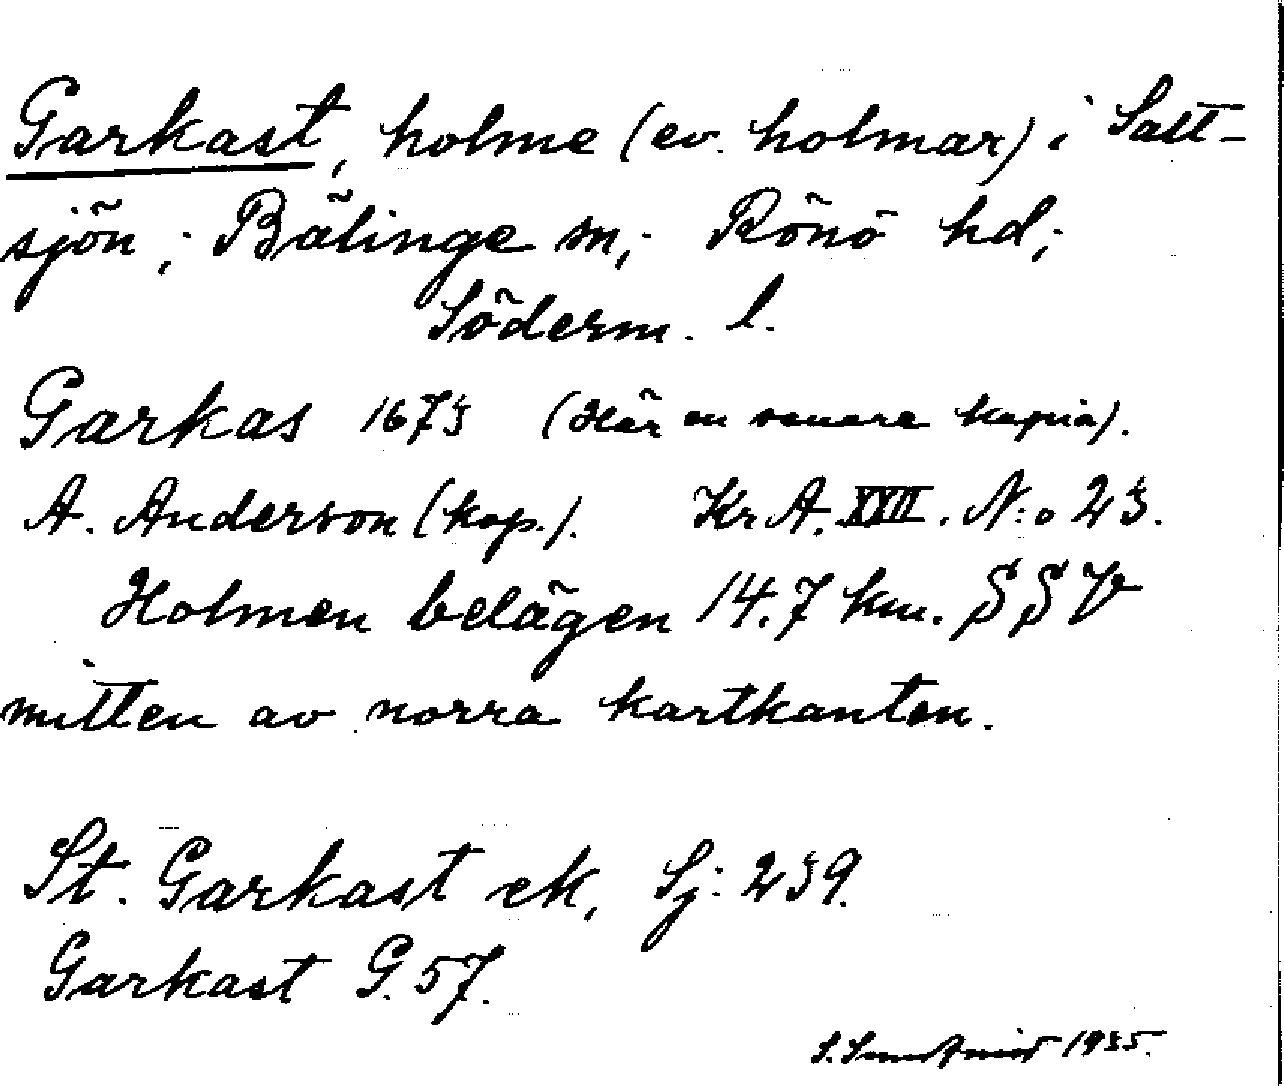 Garkast, holme (ev. holmar) i Salt-
sjön; Bälinge sn; Rönö hd;
Söderm. l.
Garkas 1673 (Här en senare kopia).
A. Anderson (kop.). Kr. A. XXII. N:o 23.
Holmen belägen 14.7 km. SSV
mitten av norra kartkanten.
St. Garkast ek, Sj: 239.
Garkast G. 57.
S. 1935.